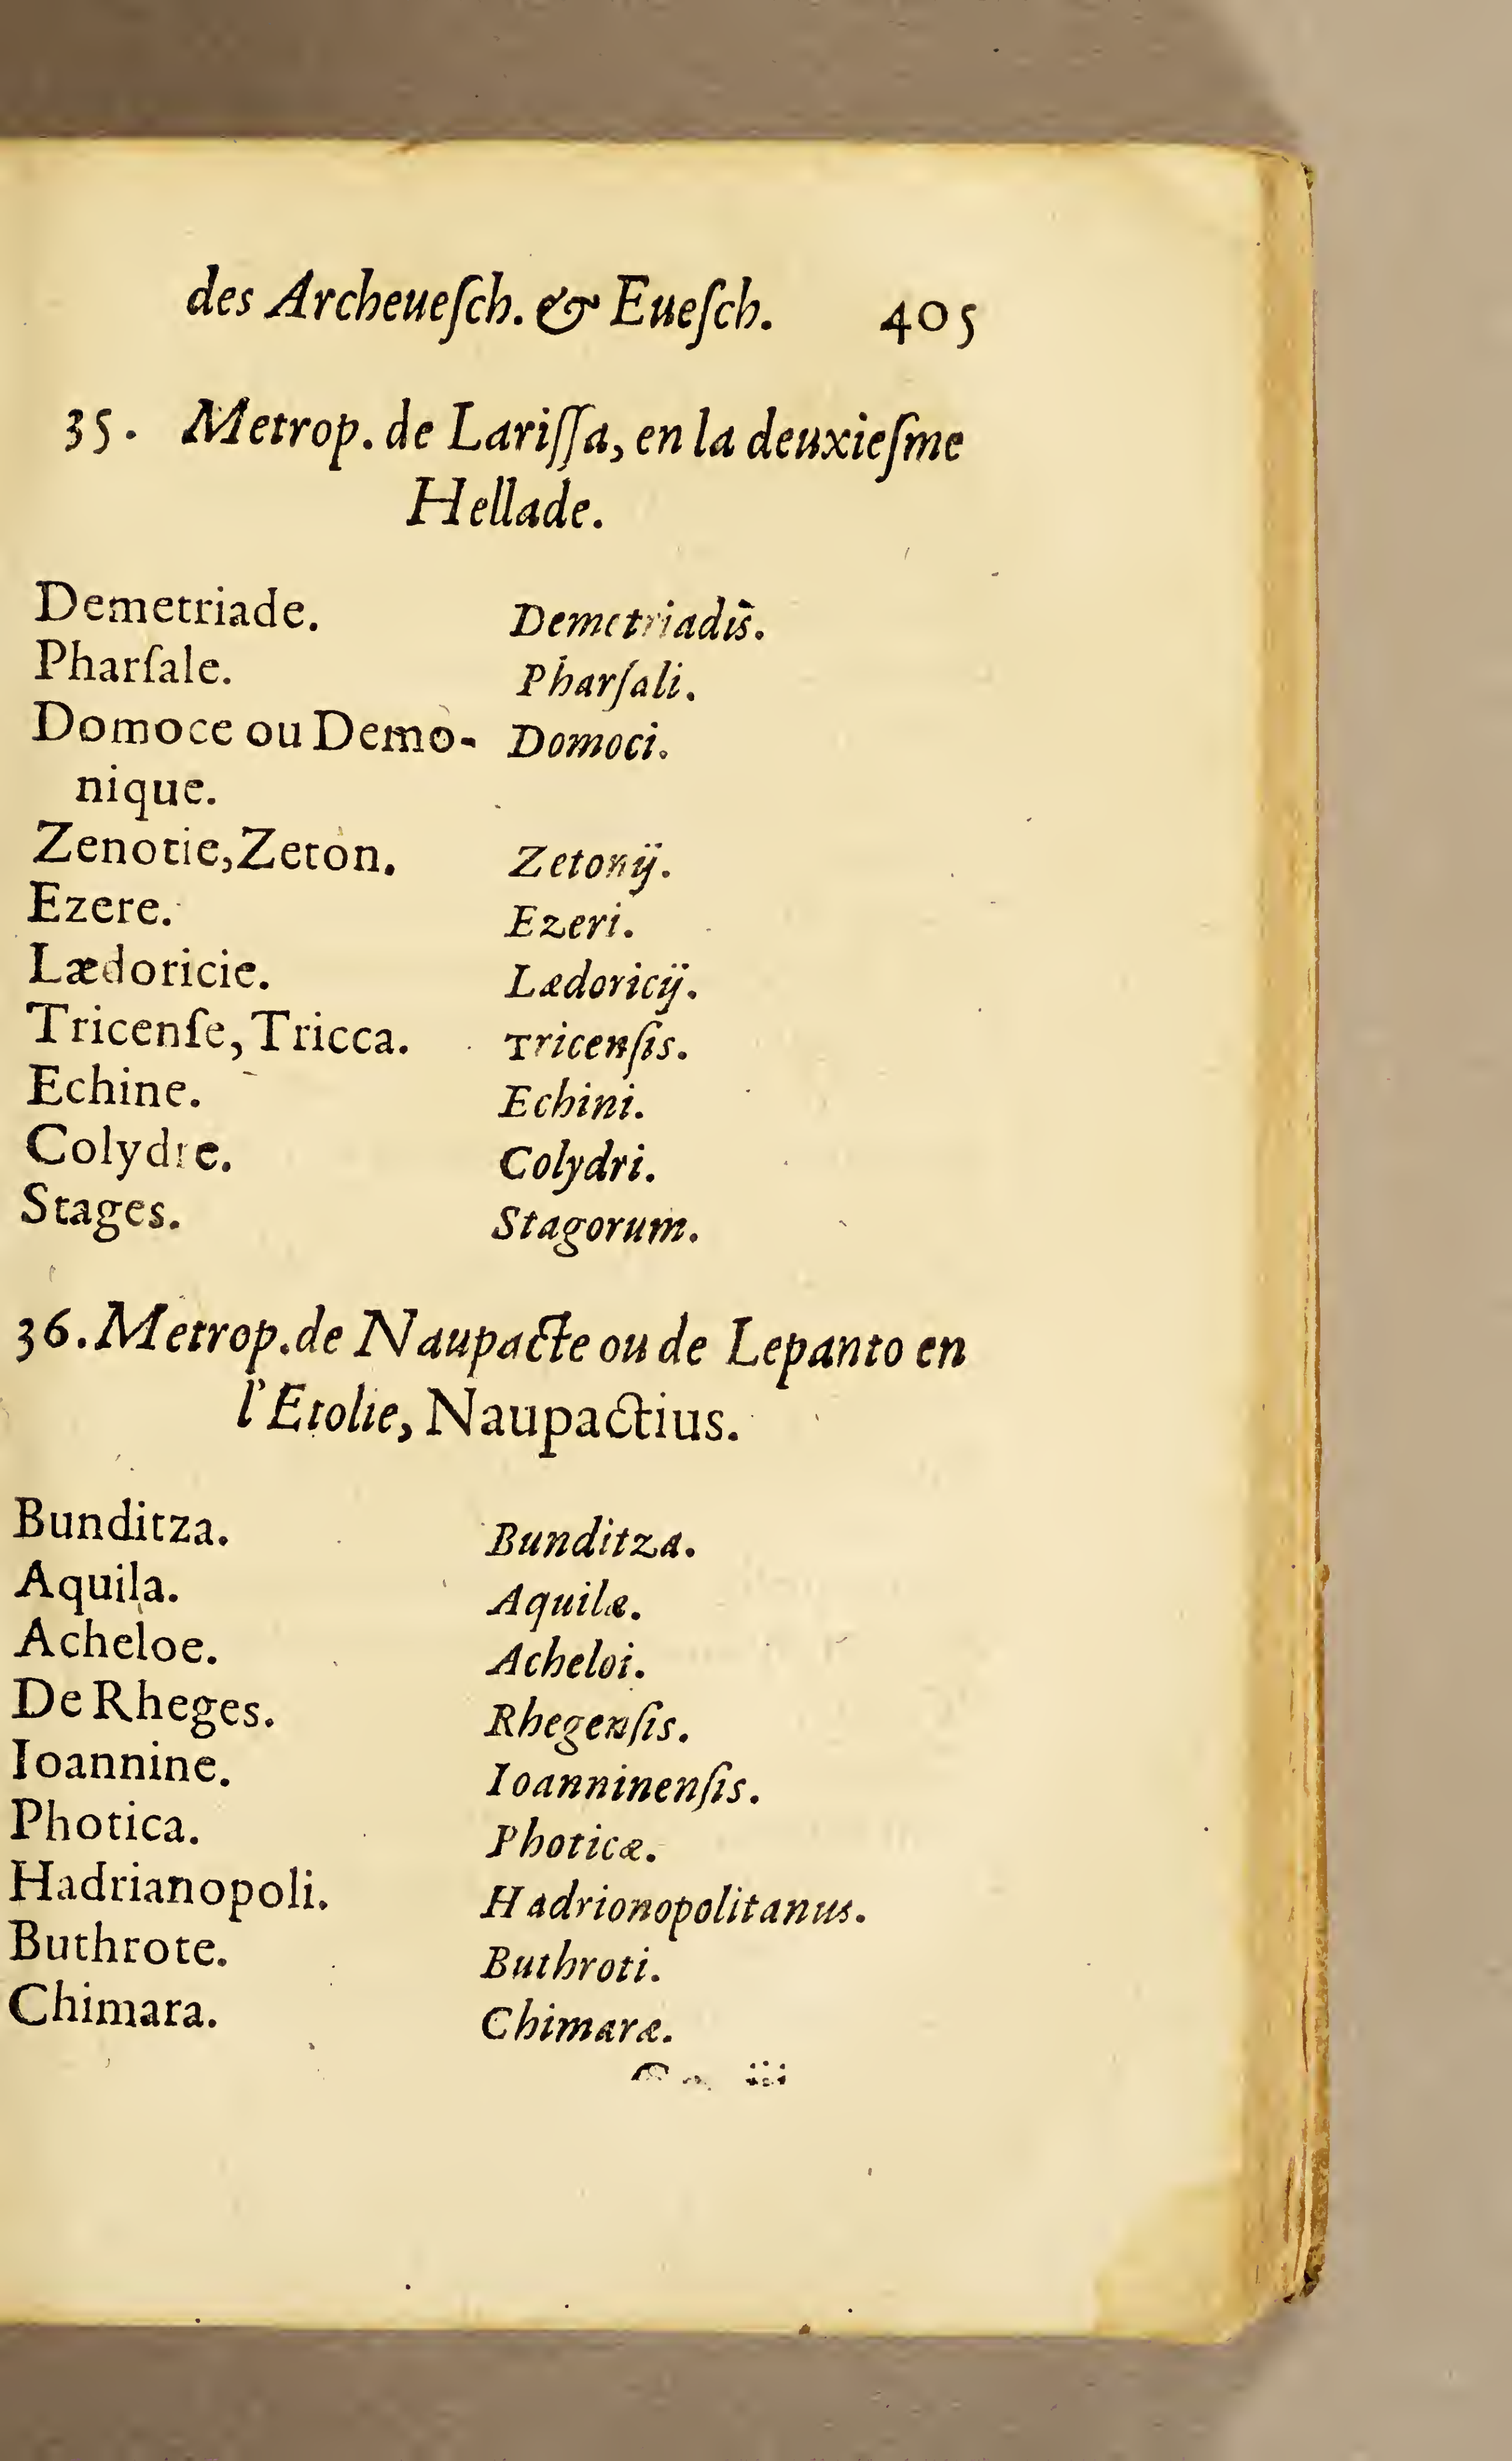 des Archeueſch. & Eueſch. 405
35. Metrop. de Lariſſa, en la deuxieſme
Hellade.
Demetriade. Demetriadis.
Pharſale. Pharſali.
Domoce ou Demo- Domoci.
nique.
Zenotie, Zeton. Zetonij.
Ezere. Ezeri.
Lædoricie. Lædoricij.
Tricenſe, Tricca. Tricenſis.
Echine. Echini.
Colydre. Colydri.
Stages. Stagorum.
36. Metrop. de Naupacte ou de Lepanto en
l'Etolie, Naupactius.
Bunditza. Bunditza.
Aquila. Aquilæ.
Acheloe. Acheloi.
De Rheges. Rhegenſis.
Ioannine. Ioanninenſis.
Photica. Photicæ.
Hadrianopoli. Hadrionopolitanus.
Buthrote. Buthroti.
Chimara. Chimaræ.
iii